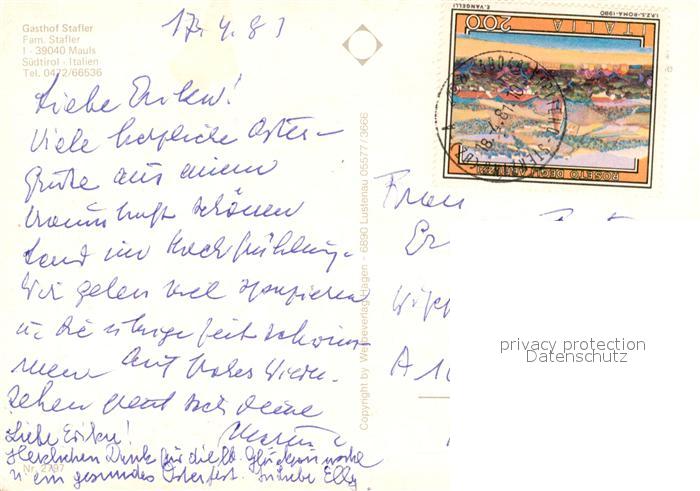 Gasthof Stafler
Fam. Stafler
I - 39040 Mauls
Südtirol - Italien
Tel. 0472/66536
17.4.81
Liebe Erika!
Viele herzliche Oster-
grüße aus einem
traumhaft schönen
Land im Hochfrühling.
Wir gehen viel spazieren
u. die übrige Zeit schwim-
men. Auf frohes Wieder-
sehen freut sich deine
Liebe Erika!
Herzlichen Dank für die lb. Glückwünsche
u. ein gesundes Osterfest. In Liebe Elly
Nr. 2797
Copyright by Werbeverlag Hagen - 6890 Lustenau 05577/3666
I.P.Z.S.-ROMA-1980
E. VANGELLI
ITALIA 200
ROSETO DEGLI ABRUZZI
18.4.81
Frau
Er
Wipp
A 1
privacy protection
Datenschutz